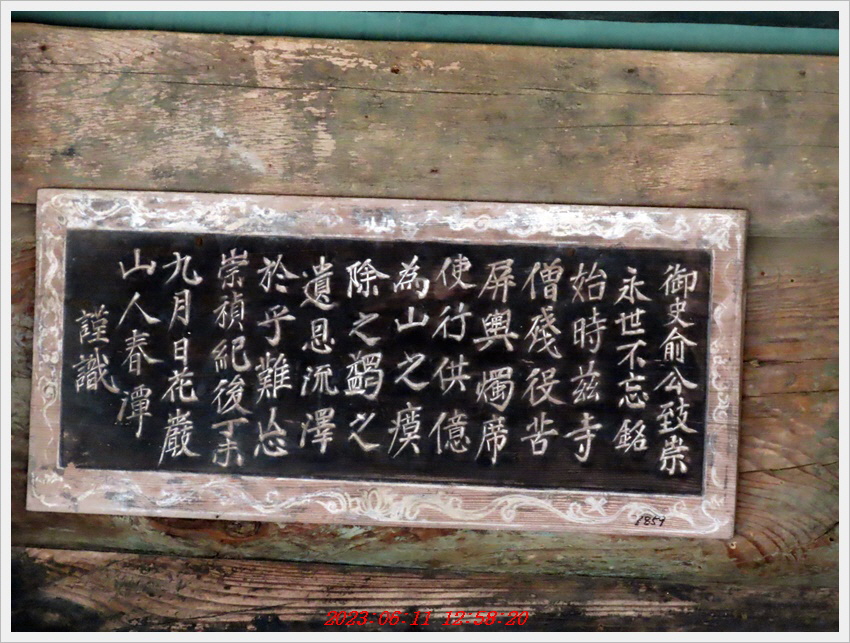 御史俞公致崇
永世不忘銘
始時茲寺
僧殘役苦
屏輿燭席
使行供億
為山之瘼
除之蠲之
遺恩流澤
於乎難忘
崇禎紀後丁未
九月日花嚴
山人春潭
謹識
1859
2023.06.11 12:59:20